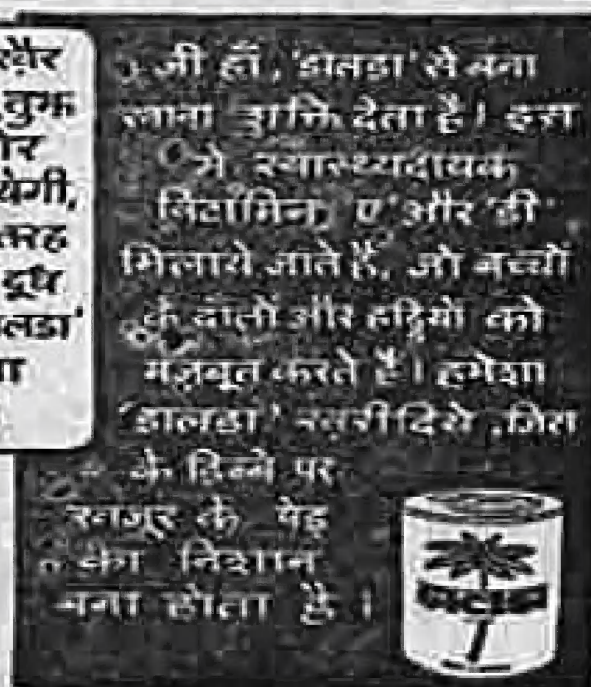 खैर
तुझ
येगी,
तरह
दूध
जी हाँ, 'डालडा' से बना
खाना शक्ति देता है। इस
में स्वास्थ्यदायक
विटामिन 'ए' और 'डी'
मिलाये जाते हैं, जो बच्चों
के दांतों और हड्डियों को
मज़बूत करते हैं। हमेशा
'डालडा' खरीदिये, जिस
के डिब्बे पर
खजूर के पेड़
का निशान
बना होता है।